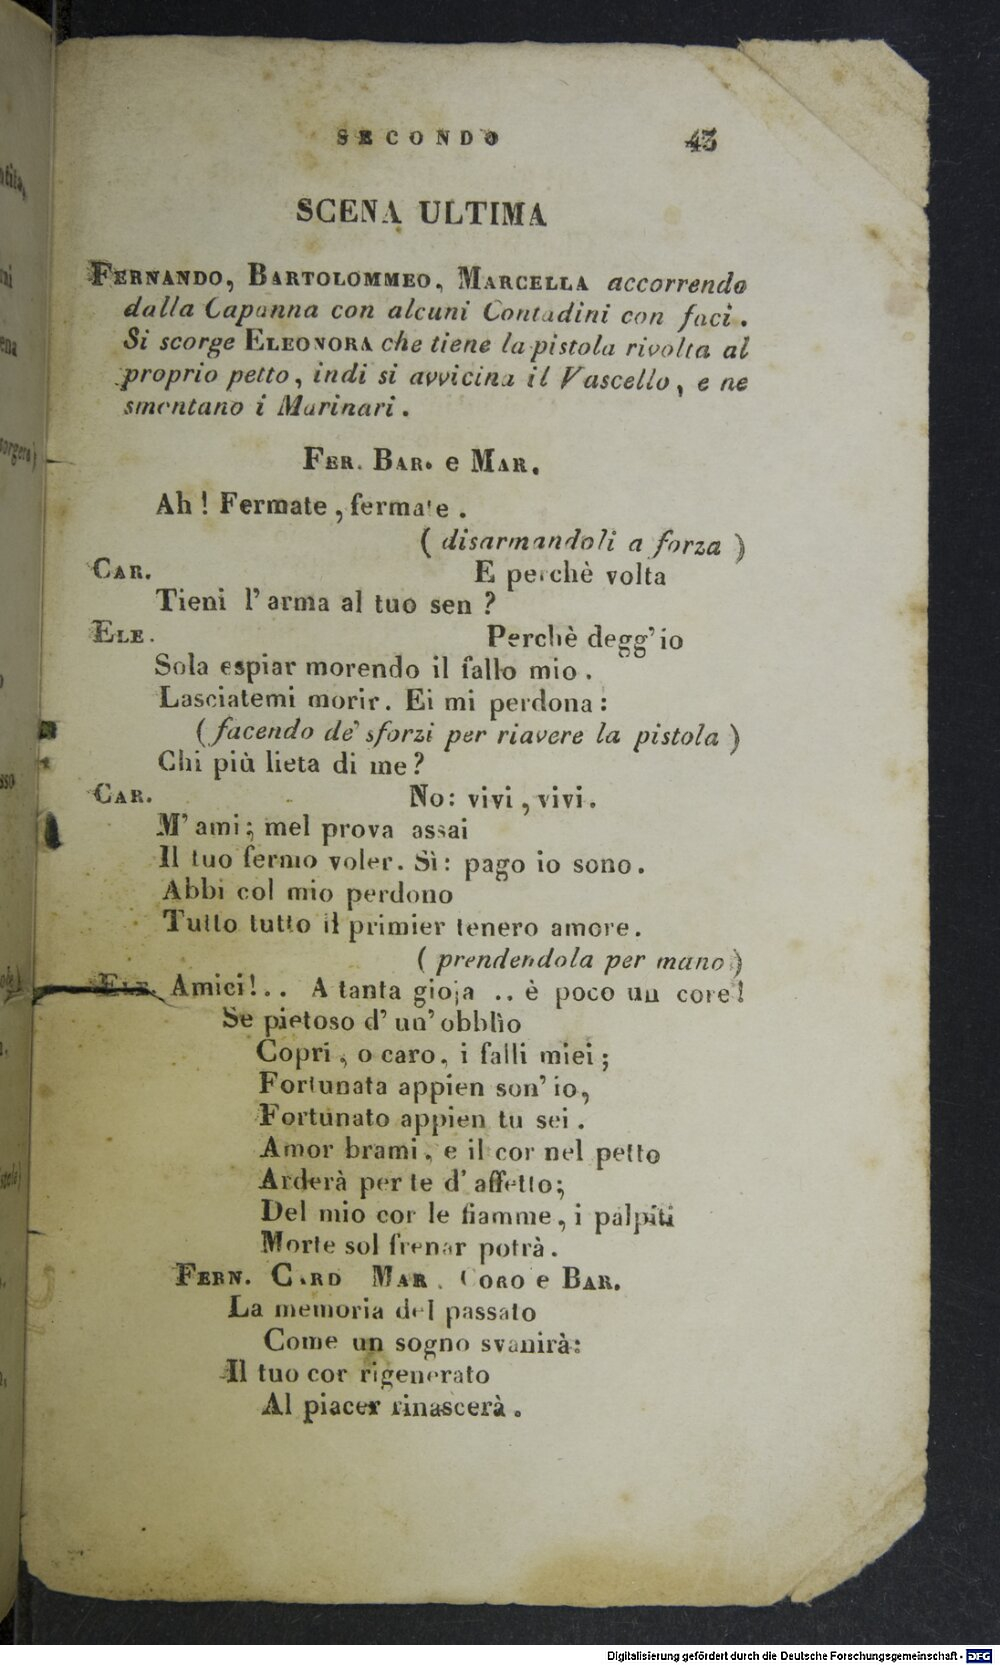 SECONDO 43
SCENA ULTIMA
FERNANDO, BARTOLOMMEO, MARCELLA accorrendo
dalla Capanna con alcuni Contadini con faci.
Si scorge ELEONORA che tiene la pistola rivolta al
proprio petto, indi si avvicina il Vascello, e ne
smontano i Marinari.
FER. BAR. e MAR.
Ah! Fermate, fermate.
(disarmandoli a forza)
CAR. E perchè volta
Tieni l'arma al tuo sen?
ELE. Perchè degg'io
Sola espiar morendo il fallo mio.
Lasciatemi morir. Ei mi perdona:
(facendo de' sforzi per riavere la pistola)
Chi più lieta di me?
CAR. No: vivi, vivi.
M'ami; mel prova assai
Il tuo fermo voler. Sì: pago io sono.
Abbi col mio perdono
Tutto tutto il primier tenero amore.
(prendendola per mano)
ELE. Amici!.. A tanta gioja .. è poco un core!
Se pietoso d'un'obblìo
Copri, o caro, i falli miei;
Fortunata appien son'io,
Fortunato appien tu sei.
Amor brami, e il cor nel petto
Arderà per te d'affetto;
Del mio cor le fiamme, i palpiti
Morte sol frenar potrà.
FERN. CARD MAR. CORO e BAR.
La memoria del passato
Come un sogno svanirà:
Il tuo cor rigenerato
Al piacer rinascerà.
Digitalisierung gefördert durch die Deutsche Forschungsgemeinschaft - DFG